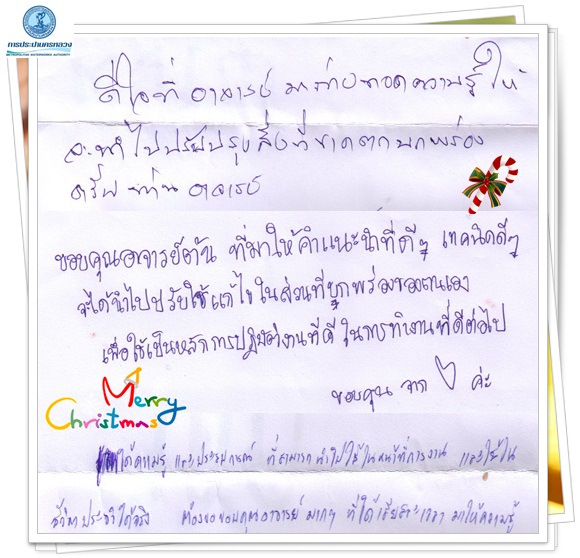 การประปานครหลวง
METROPOLITAN WATERWORKS AUTHORITY
ดีใจที่ อาจารย์ มาถ่ายทอดความรู้ ให้
จะนำไปปรับปรุงสิ่งที่ขาดตกบกพร่อง
ครับ ท่าน อาจารย์
ขอบคุณอาจารย์ต้น ที่มาให้คำแนะนำที่ดีๆ เทคนิคดีๆ
จะได้นำไปปรับใช้แก้ไขในส่วนที่บกพร่องของตนเอง
เพื่อใช้เป็นหลักการปฏิบัติงานที่ดี ในการทำงานที่ดีต่อไป
ขอบคุณ จาก ค่ะ
Merry
Christmas
ได้ความรู้ และประสบการณ์ ที่สามารถนำไปใช้ในหน้าที่การงาน และใช้ใน
ชีวิตประจำได้จริง ต้องขอขอบคุณอาจารย์ มากๆ ที่ได้เสียสละเวลา มาให้ความรู้